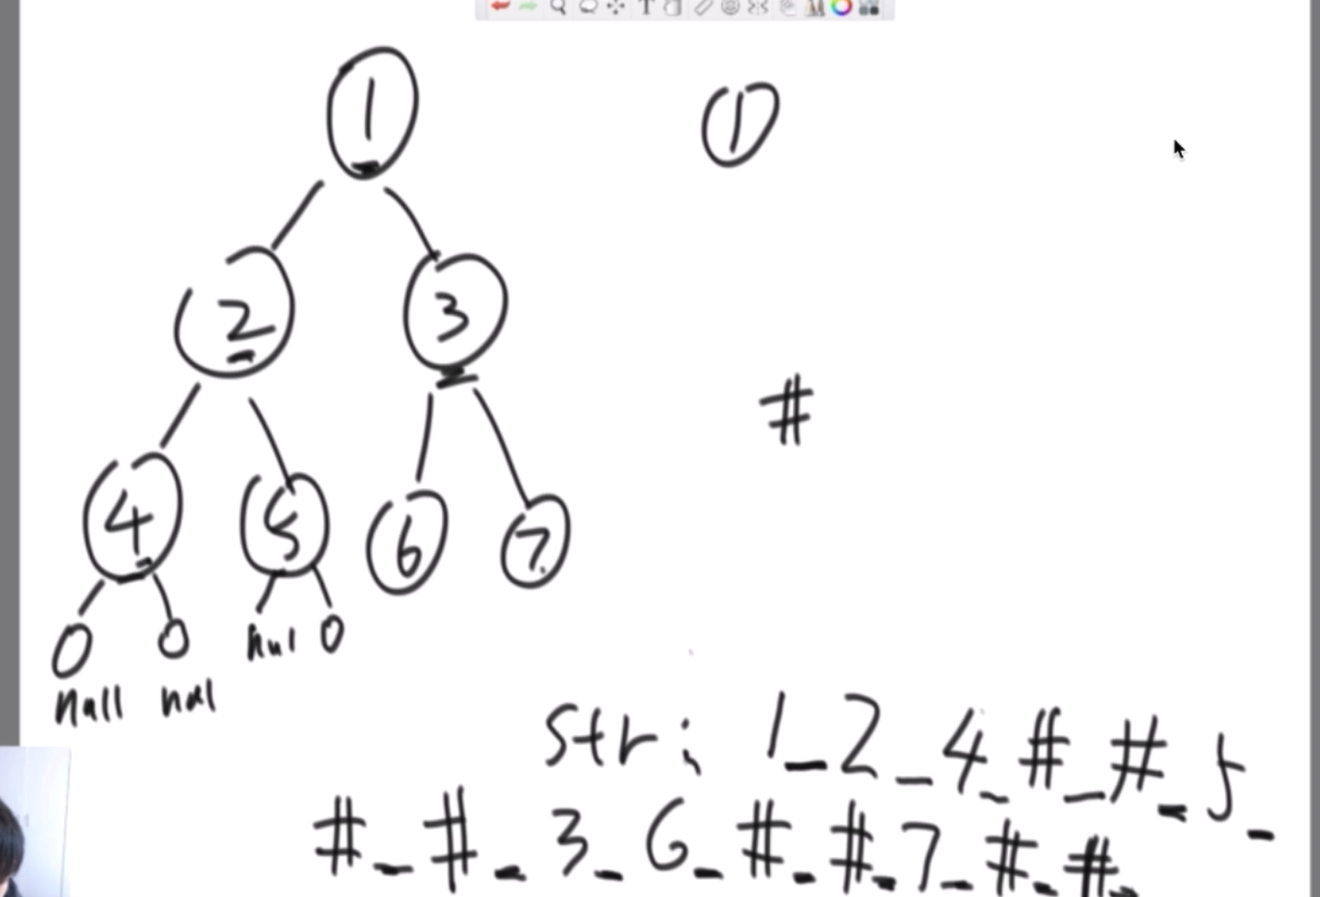 1
1
2
3
#
4
5
6
7
0 0 nul 0
null nul
str: 1_2_4_#_#_5_
#_#_3_6_#_#_7_#_#_